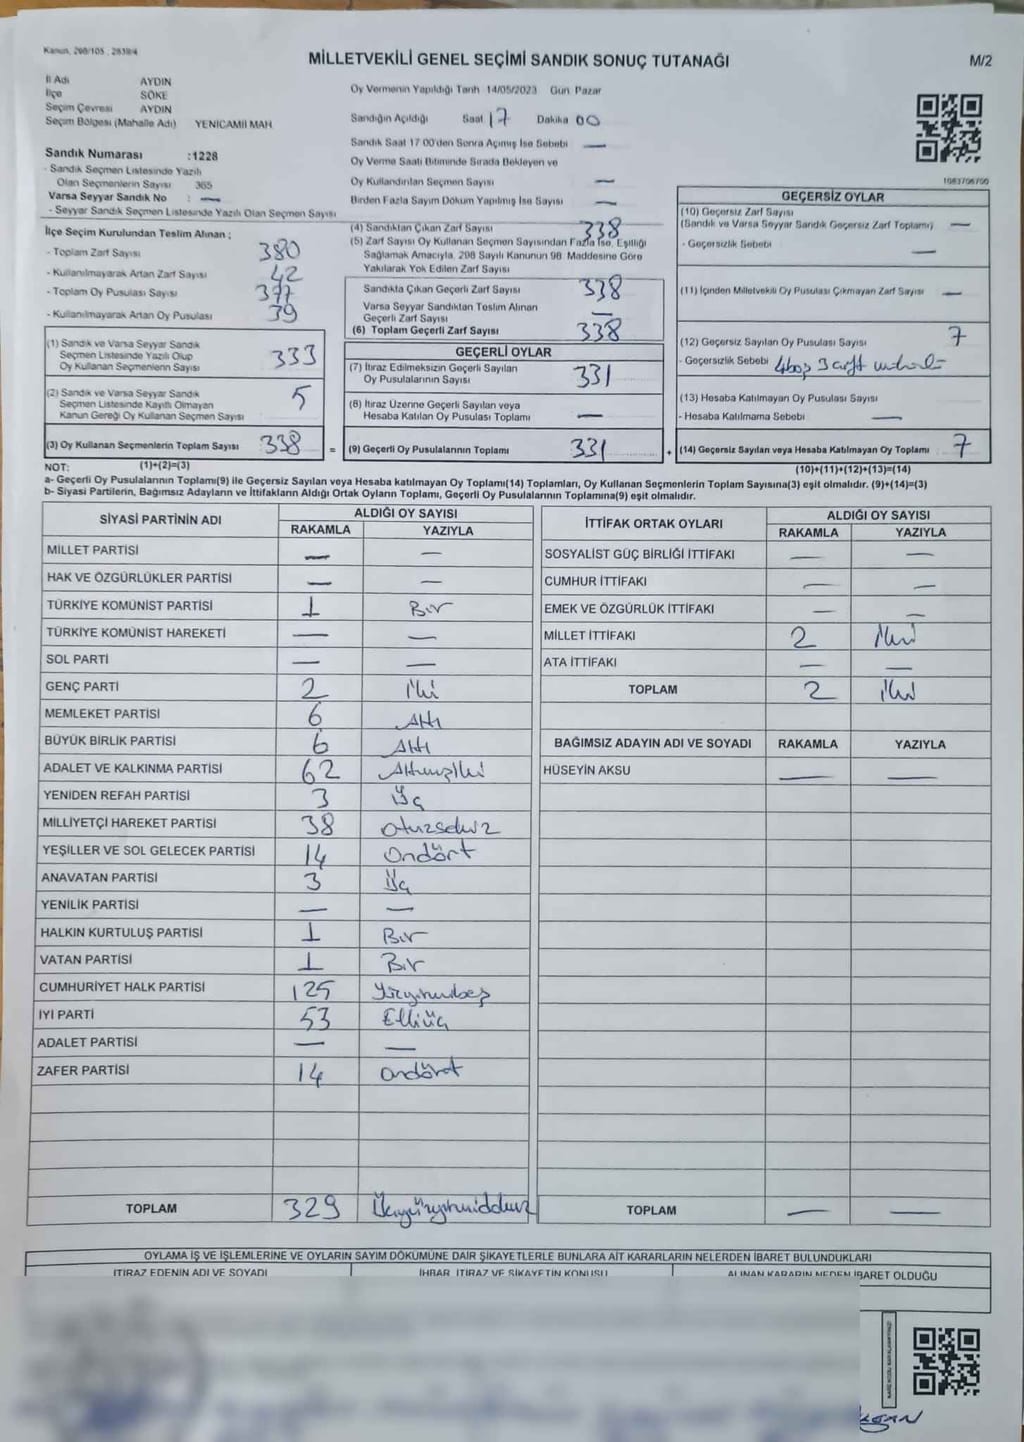 Kanun, 298/105 : 2839/4
MİLLETVEKİLİ GENEL SEÇİMİ SANDIK SONUÇ TUTANAĞI
M/2
İl Adı AYDIN
İlçe SÖKE
Seçim Çevresi AYDIN
Seçim Bölgesi (Mahalle Adı) YENİCAMİİ MAH
Sandık Numarası :1228
- Sandık Seçmen Listesinde Yazılı
Olan Seçmenlerin Sayısı 365
Varsa Seyyar Sandık No : —
- Seyyar Sandık Seçmen Listesinde Yazılı Olan Seçmen Sayısı
Oy Vermenin Yapıldığı Tarih 14/05/2023 Gün Pazar
Sandığın Açıldığı Saat 17 Dakika 00
Sandık Saat 17.00'den Sonra Açımış İse Sebebi —
Oy Verme Saati Bitiminde Sırada Bekleyen ve
Oy Kullandırılan Seçmen Sayısı —
Birden Fazla Sayım Döküm Yapılmış İse Sayısı —
1083706700
İlçe Seçim Kurulundan Teslim Alınan ;
- Toplam Zarf Sayısı 380
- Kullanılmayarak Artan Zarf Sayısı 42
- Toplam Oy Pusulası Sayısı 377
- Kullanılmayarak Artan Oy Pusulası 39
(1) Sandık ve Varsa Seyyar Sandık
Seçmen Listesinde Yazılı Olup
Oy Kullanan Seçmenlerin Sayısı 333
(2) Sandık ve Varsa Seyyar Sandık
Seçmen Listesinde Kayıtlı Olmayan
Kanun Gereği Oy Kullanan Seçmen Sayısı 5
(3) Oy Kullanan Seçmenlerin Toplam Sayısı 338 =
(4) Sandıktan Çıkan Zarf Sayısı 338
(5) Zarf Sayısı Oy Kullanan Seçmen Sayısından Fazla İse, Eşitliği
Sağlamak Amacıyla, 298 Sayılı Kanunun 98 Maddesine Göre
Yakılarak Yok Edilen Zarf Sayısı
Sandıkta Çıkan Geçerli Zarf Sayısı 338
Varsa Seyyar Sandıktan Teslim Alınan
Geçerli Zarf Sayısı —
(6) Toplam Geçerli Zarf Sayısı 338
GEÇERLİ OYLAR
(7) İtiraz Edilmeksizin Geçerli Sayılan
Oy Pusulalarının Sayısı 331
(8) İtiraz Üzerine Geçerli Sayılan veya
Hesaba Katılan Oy Pusulası Toplamı —
(9) Geçerli Oy Pusulalarının Toplamı 331 +
GEÇERSİZ OYLAR
(10) Geçersiz Zarf Sayısı
(Sandık ve Varsa Seyyar Sandık Geçersiz Zarf Toplamı) —
- Geçersizlik Sebebi —
(11) İçinden Milletvekili Oy Pusulası Çıkmayan Zarf Sayısı —
(12) Geçersiz Sayılan Oy Pusulası Sayısı 7
- Geçersizlik Sebebi 4 boş 3 çift
(13) Hesaba Katılmayan Oy Pusulası Sayısı
- Hesaba Katılmama Sebebi —
(14) Geçersiz Sayılan veya Hesaba Katılmayan Oy Toplamı 7
NOT: (1)+(2)=(3)
(10)+(11)+(12)+(13)=(14)
a- Geçerli Oy Pusulalarının Toplamı(9) ile Geçersiz Sayılan veya Hesaba katılmayan Oy Toplamı(14) Toplamları, Oy Kullanan Seçmenlerin Toplam Sayısına(3) eşit olmalıdır. (9)+(14)=(3)
b- Siyasi Partilerin, Bağımsız Adayların ve İttifakların Aldığı Ortak Oyların Toplamı, Geçerli Oy Pusulalarının Toplamına(9) eşit olmalıdır.
SİYASİ PARTİNİN ADI ALDIĞI OY SAYISI
RAKAMLA YAZIYLA
MİLLET PARTİSİ — —
HAK VE ÖZGÜRLÜKLER PARTİSİ — —
TÜRKİYE KOMÜNİST PARTİSİ 1 Bir
TÜRKİYE KOMÜNİST HAREKETİ — —
SOL PARTİ — —
GENÇ PARTİ 2 İki
MEMLEKET PARTİSİ 6 Altı
BÜYÜK BİRLİK PARTİSİ 6 Altı
ADALET VE KALKINMA PARTİSİ 62 Altmışiki
YENİDEN REFAH PARTİSİ 3 Üç
MİLLİYETÇİ HAREKET PARTİSİ 38 otuzsekiz
YEŞİLLER VE SOL GELECEK PARTİSİ 14 Ondört
ANAVATAN PARTİSİ 3 Üç
YENİLİK PARTİSİ — —
HALKIN KURTULUŞ PARTİSİ 1 Bir
VATAN PARTİSİ 1 Bir
CUMHURİYET HALK PARTİSİ 125 Yüzyirmibeş
İYİ PARTİ 53 Elliüç
ADALET PARTİSİ — —
ZAFER PARTİSİ 14 ondört
TOPLAM 329 Üçyüzyirmidokuz
İTTİFAK ORTAK OYLARI ALDIĞI OY SAYISI
RAKAMLA YAZIYLA
SOSYALİST GÜÇ BİRLİĞİ İTTİFAKI — —
CUMHUR İTTİFAKI — —
EMEK VE ÖZGÜRLÜK İTTİFAKI — —
MİLLET İTTİFAKI 2 İki
ATA İTTİFAKI — —
TOPLAM 2 İki
BAĞIMSIZ ADAYIN ADI VE SOYADI RAKAMLA YAZIYLA
HÜSEYİN AKSU — —
TOPLAM — —
OYLAMA İŞ VE İŞLEMLERİNE VE OYLARIN SAYIM DÖKÜMÜNE DAİR ŞİKAYETLERLE BUNLARA AİT KARARLARIN NELERDEN İBARET BULUNDUKLARI
İTİRAZ EDENİN ADI VE SOYADI İHBAR, İTİRAZ VE ŞİKAYETİN KONUSU ALINAN KARARIN NEDEN İBARET OLDUĞU